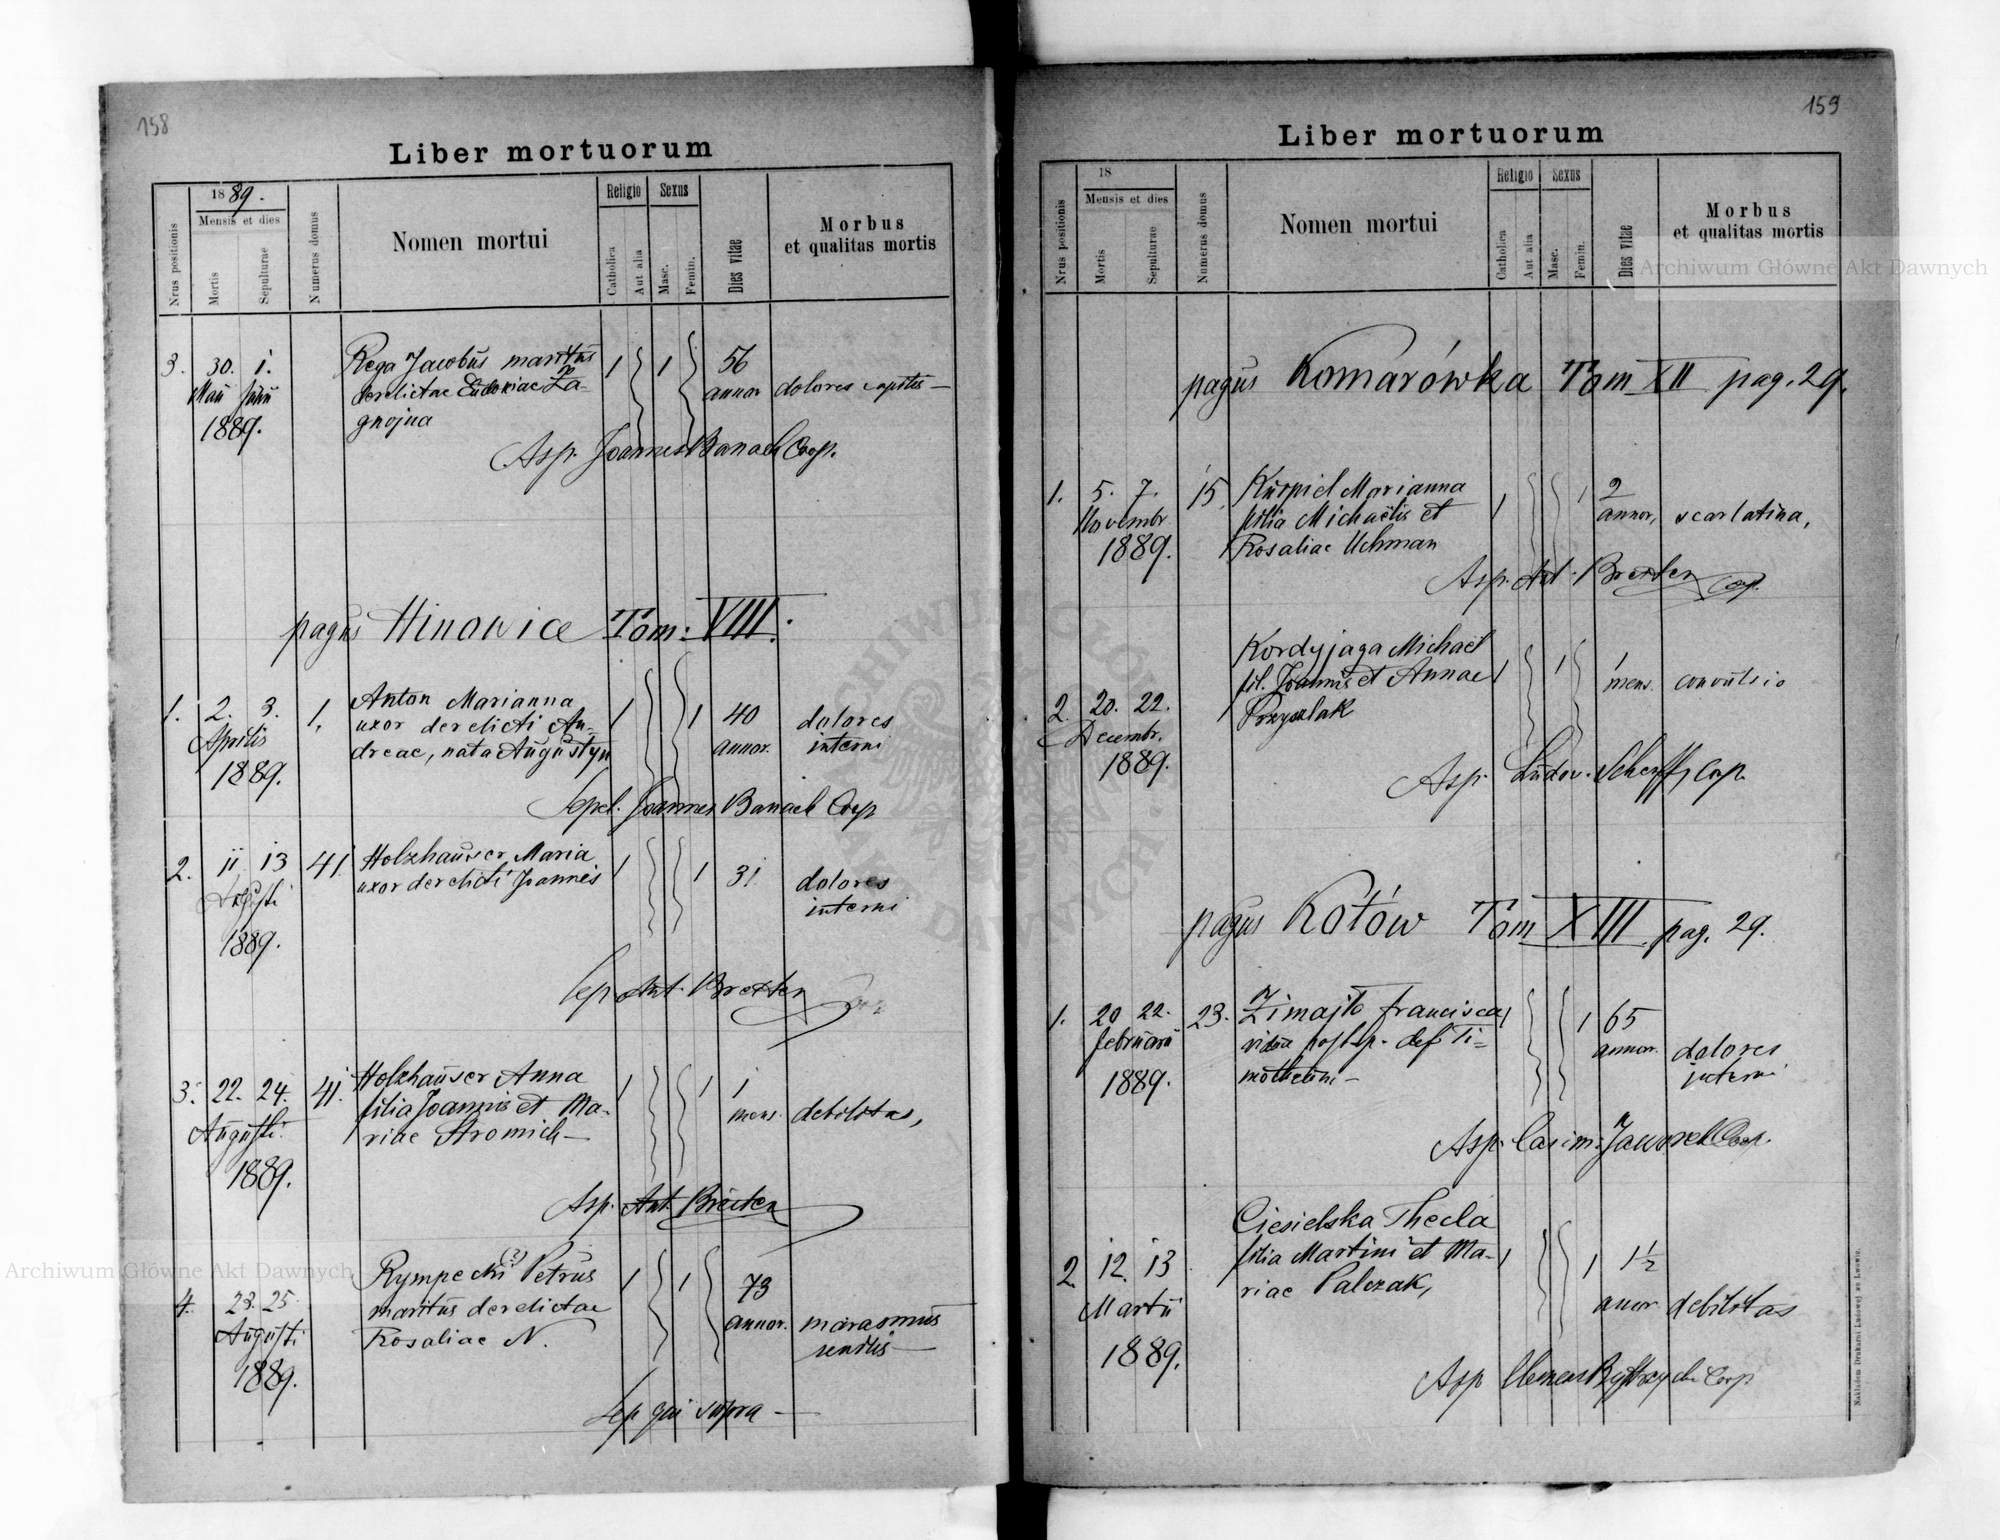 158
Liber mortuorum
Nrus positionis
1889.
Mensis et dies
Mortis
Sepulturae
Numerus domus
Nomen mortui
Religio
Catholica
Aut alia
Sexus
Masc.
Femin.
Dies vitae
Morbus
et qualitas mortis
3. 30. 1. Rega Jacobus maritus 1 1 56
Maii Junii derelictae Eudoxiae Za- annor dolores capitis
1889. gnojna
Asp. Joannes Banach Coop.
pagus Hinowice Tom: VIII.
1. 2. 3. 1. Anton Marianna 1 1 40 dolores
Aprilis uxor derelicti An- annor. interni
1889. dreae, nata Augustyn
Sepel. Joannes Banach Coop
2. 11 13 41 Holzhauser Maria 1 1 31 dolores
Augusti uxor derelicti Joannis interni
1889.
Sep Ant. Brexten
3. 22. 24. 41. Holzhauser Anna 1 1 1
Augusti filia Joannis et Ma- mens. debilitas,
1889. riae Stromich
Asp. Ant. Brexten
4. 23. 25. Rympecki (?) Petrus 1 1 73
Augusti maritus derelictae annor. marasmus
1889. Rosaliae N. senilis
Sep qui supra
159
Liber mortuorum
Nrus positionis
18
Mensis et dies
Mortis
Sepulturae
Numerus domus
Nomen mortui
Religio
Catholica
Aut alia
Sexus
Masc.
Femin.
Dies vitae
Morbus
et qualitas mortis
pagus Komarówka Tom XII pag. 29.
1. 5. 7. 15. Kurpiel Marianna 1 1 2
Novembr filia Michaëlis et annor, scarlatina,
1889. Rosaliae Uchman
Asp. Ant. Brexten Coop.
Kordyjaga Michael
2. 20. 22. fil. Joannis et Annae 1 1 1 mens. convulsio
Decembr. Przyszlak
1889.
Asp. Ludov. Scherff, Coop.
pagus Kotów Tom XIII pag. 29.
1. 20 22. 23. Zimajto Francisca 1 1 65
Februarii vidua post sp. def. Ti- annor. dolores
1889. motheum interni
Asp. Casim. Jaworek Coop.
Ciesielska Thecla
2. 12. 13 filia Martini et Ma- 1 1 1½
Martii riae Palczak, anor debilitas
1889.
Asp Clemens Coop
Nakładem Drukarni Ludowej we Lwowie.
Archiwum Główne Akt Dawnych
Archiwum Główne Akt Dawnych
ARCHIWUM GŁÓWNE AKT DAWNYCH